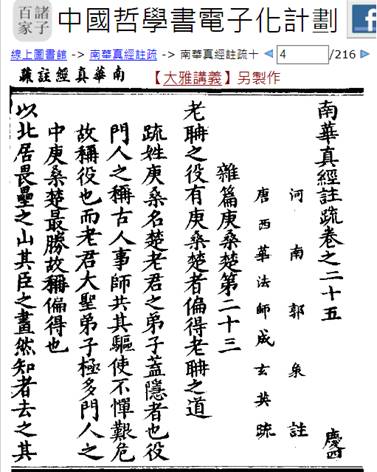 諸子
百家
中國哲學書電子化計劃
線上圖書館 -> 南華真經註疏 -> 南華真經註疏十
4
/216
南華真經註疏
【大雅講義】另製作
南華真經註疏卷之二十五
慶四
河南郭象註
唐西華法師成玄英疏
雜篇庚桑楚第二十三
老聃之役有庚桑楚者偏得老聃之道
疏姓庚桑名楚老君之弟子蓋隱者也役
門人之稱古人事師共其驅使不憚艱危
故稱役也而老君大聖弟子極多門人之
中庚桑楚最勝故稱偏得也
以北居畏壘之山其臣之畫然知者去之其